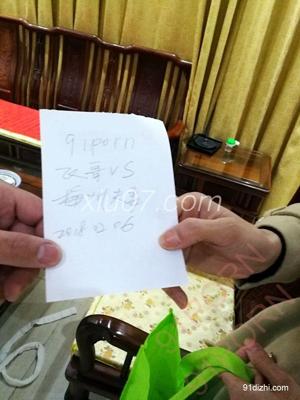 91porn
改哥VS
2018 02 06
xiu07.com
91dizhi.com